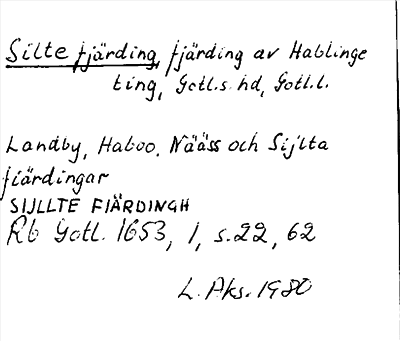 Silte fjärding, fjärding av Hablinge
ting, Gotl.s. hd, Gotl.l.
Landby, Haboo, Nääss och Sijlta
fiärdingar
SIJLLTE FIÄRDINGH
Rb Gotl. 1653, 1, s.22, 62
L. Aks. 1980